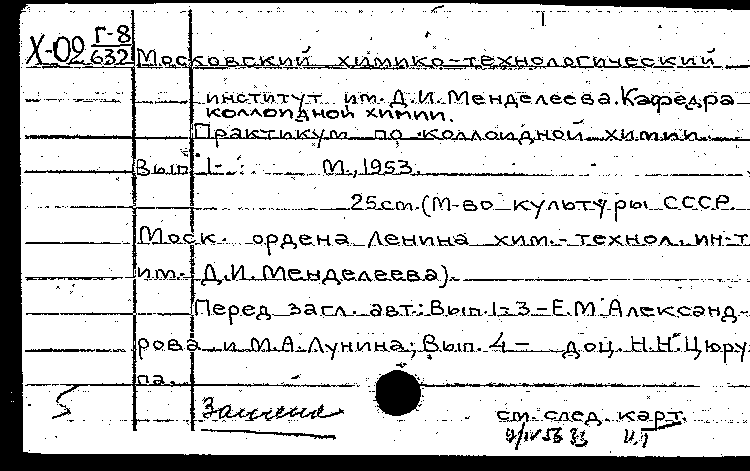 Х-02 Г-8
632
Московский химико-технологический
институт им. Д.И. Менделеева. Кафедра
коллоидной химии.
Практикум по коллоидной химии.
Вып. 1- . М., 1953.
25 см. (М-во культуры СССР.
Моск. ордена Ленина хим.-технол. ин-т
им. Д.И. Менделеева).
Перед загл. авт.: Вып. 1-3 – Е.М. Александ-
рова и М.А. Лунина; Вып. 4 – доц. Н.Н. Цюру-
па.
Замена
см. след. карт.